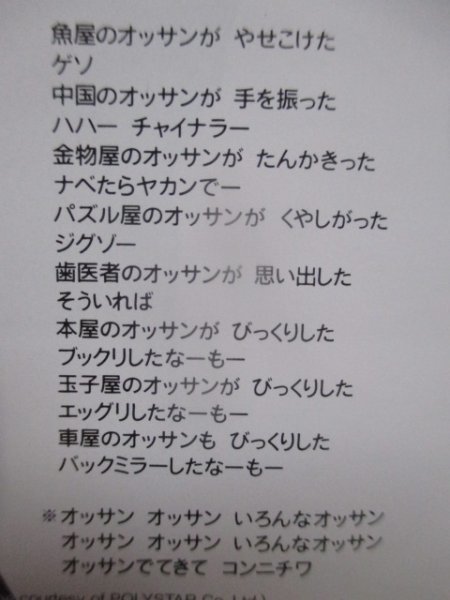 魚屋のオッサンが やせこけた
ゲソ
中国のオッサンが 手を振った
ハハー チャイナラー
金物屋のオッサンが たんかきった
ナベたらヤカンでー
パズル屋のオッサンが くやしがった
ジグゾー
歯医者のオッサンが 思い出した
そういれば
本屋のオッサンが びっくりした
ブックリしたなーもー
玉子屋のオッサンが びっくりした
エッグリしたなーもー
車屋のオッサンも びっくりした
バックミラーしたなーもー
※オッサン オッサン いろんなオッサン
オッサン オッサン いろんなオッサン
オッサンでてきて コンニチワ
courtesy of POLYSTAR Co., Ltd.)